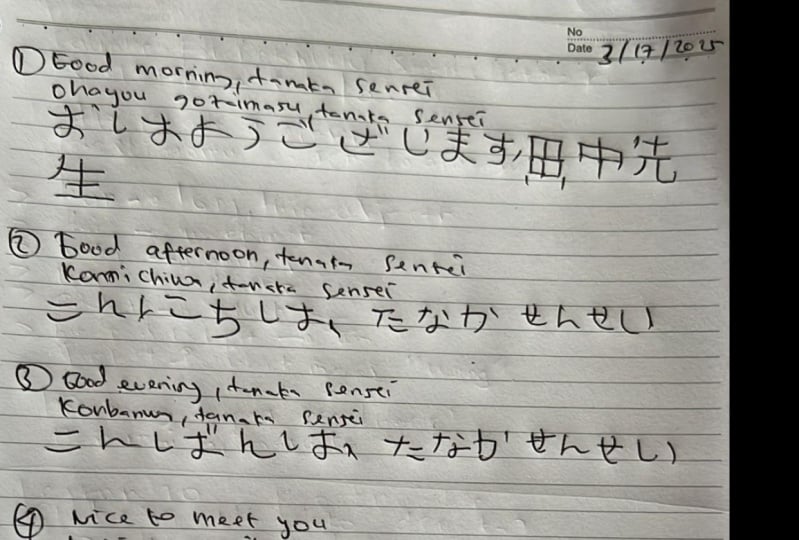 No
Date 3/17/2025
① Good morning, tanaka sensei
ohayou gozaimasu, tanaka sensei
おはようございます,田中先
生
② Good afternoon, tanaka sensei
Konnichiwa, tanaka sensei
こんにちは、たなか せんせい
③ Good evening, tanaka sensei
Konbanwa, tanaka sensei
こんばんは、たなか せんせい
④ Nice to meet you